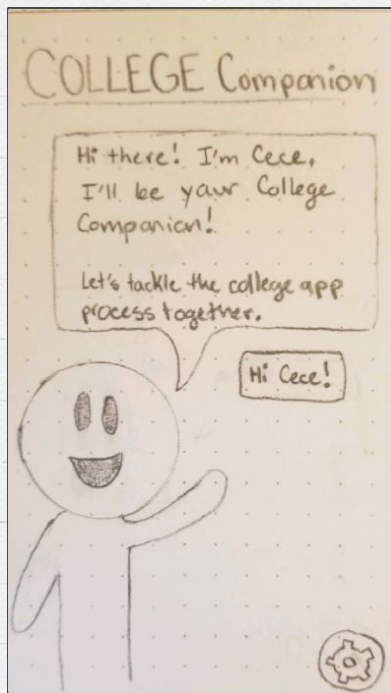 COLLEGE Companion
Hi there! I'm Cece,
I'll be your College
Companion!
Let's tackle the college app
process together.
Hi Cece!